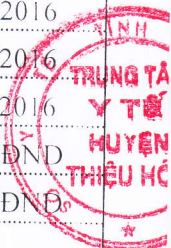 2016
2016
2016
ĐND
ĐND
TRUNG TÂ
Y TẾ
HUYỆN
THIỆU HÓ